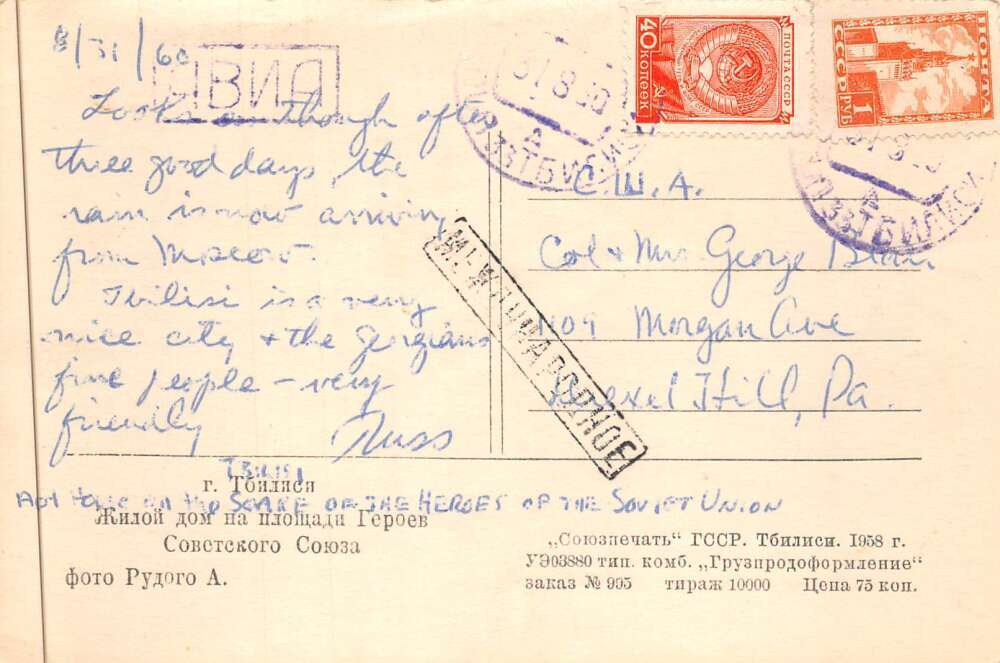 8/31/60
АВИА
Looks as though after
three good days, the
rain is now arriving
from Moscow.
Tbilisi is a very
nice city + the Georgians
fine people - very
friendly
Russ
40 КОПЕЕК
ПОЧТА СССР
ПОЧТА
СССР
1 РУБ
31 8 60
ТБИЛИСИ
31 8
ТБИЛИСИ
С.Ш.А.
Col + Mrs George Blair
Morgan Ave
Drexel Hill, Pa.
МЕЖДУНАРОДНОЕ
TBILISI
г. Тбилиси
SQUARE OF THE HEROES OF THE SOVIET UNION
Жилой дом на площади Героев
Советского Союза
фото Рудого А.
„Союзпечать“ ГССР. Тбилиси. 1958 г.
УЭ03880 тип. комб. „Грузпродоформление“
заказ № 995 тираж 10000 Цена 75 коп.